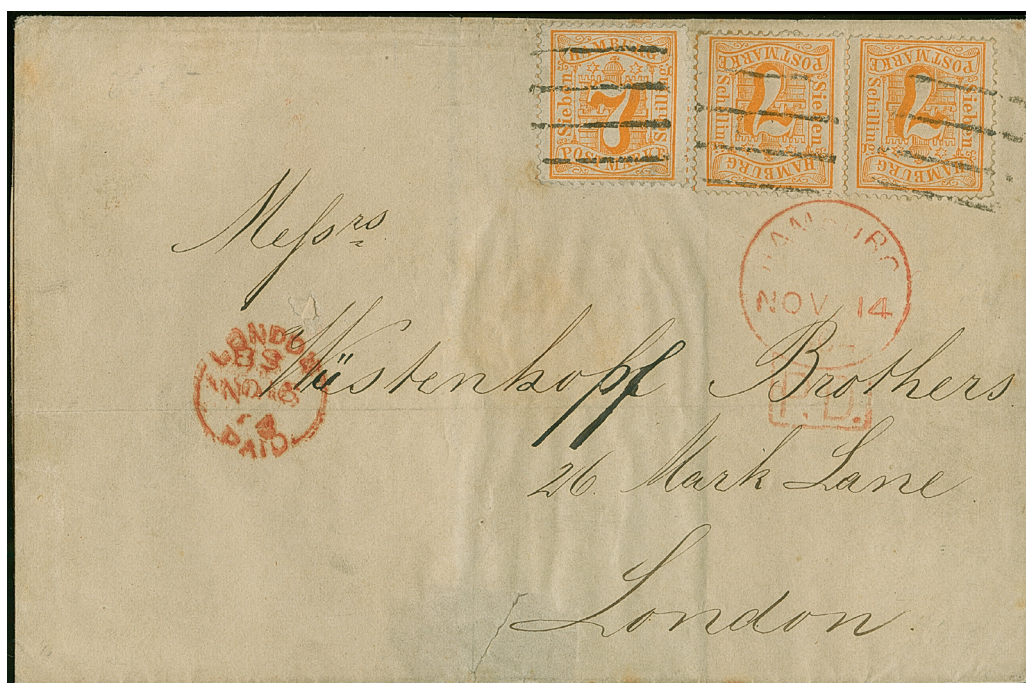 HAMBURG
Sieben
7
Schilling
POSTMARKE
HAMBURG
Sieben
7
Schilling
POSTMARKE
HAMBURG
Sieben
7
Schilling
POSTMARKE
Messrs
HAMBURG
NOV 14
LONDON
83
NO 16
PAID
Wüstenhoff Brothers
P.D.
26. Mark Lane
London.